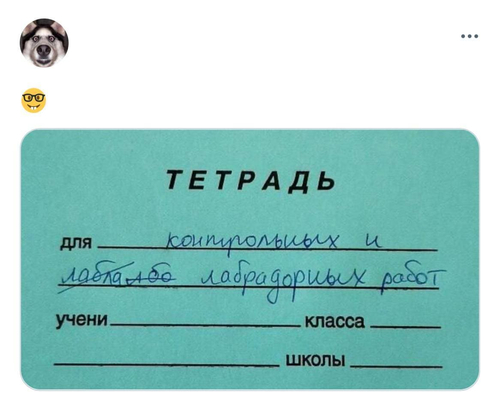 ТЕТРАДЬ
для контрольных и
лаблалба лабрадорных работ
учени класса
школы